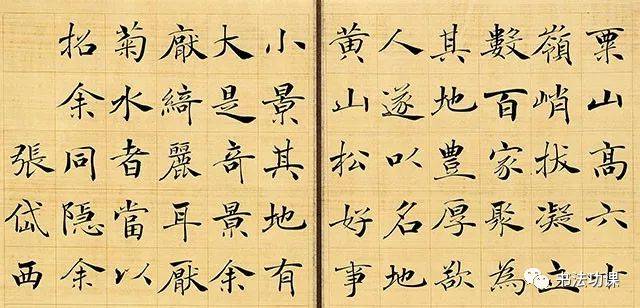 粟山高六
嶺峭拔凝立
數百家聚為
其地豐厚
人遂以名地
黃山松好事
小景其地有
大是奇景余
厭綺麗耳厭
菊水者當以
招余同隱余
張岱西
书法功课